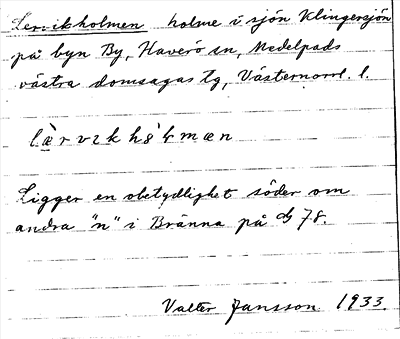 Lervikholmen holme i sjön Klingersjön
på byn By, Haverö sn, Medelpads
västra domsagas tg, Västernorrl. l.
Ligger en obetydlighet söder om
andra "n" i Bränna på db 78.
Valter Jansson 1933.